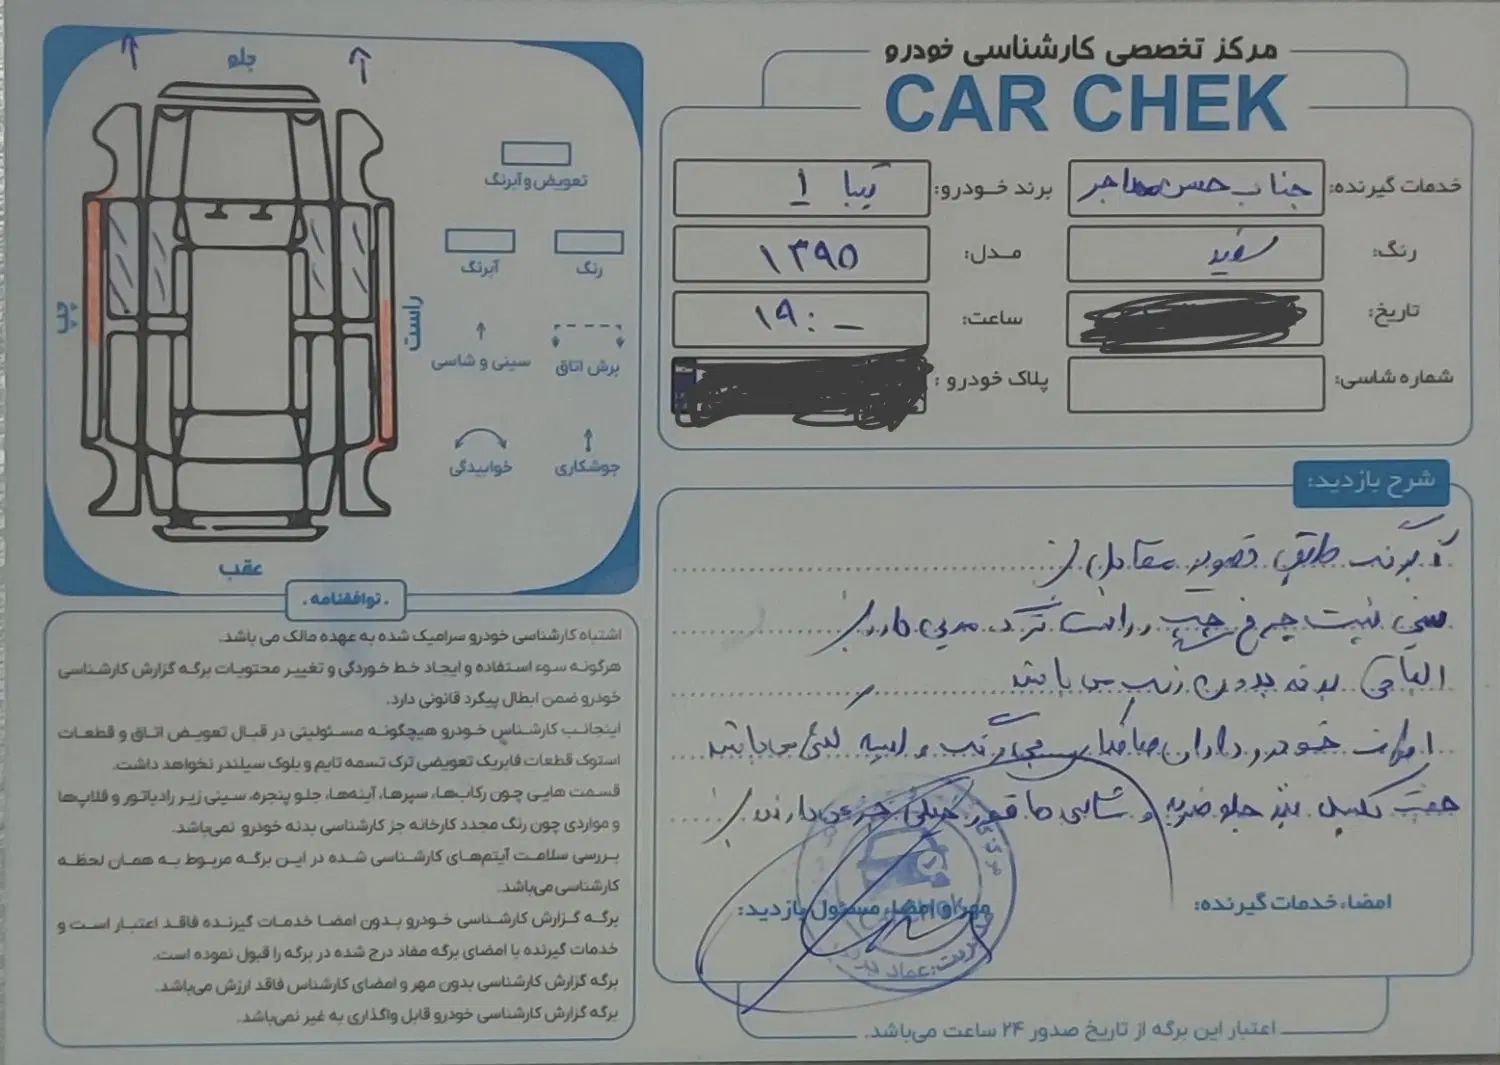 مرکز تخصصی کارشناسی خودرو
CAR CHEK
خدمات گیرنده: جناب حسن مهاجر
برند خودرو: تیبا 1
رنگ: سفید
مدل: ۱۳۹۵
تاریخ:
ساعت: ۱۹:_
شماره شاسی:
پلاک خودرو :
جلو
تعویض و آبرنگ
رنگ
آبرنگ
چپ
راست
برش اتاق
سینی و شاسی
جوشکاری
خوابیدگی
عقب
شرح بازدید:
آبرنگ طبق تصویر مقابل
سینی پشت چرخ چپ و راست ترک دارد
الباقی بدنه بدون رنگ می باشد
خودرو دارای صافکاری بی رنگ و لیسه گیری می باشد
جهت جلو ضربه و شاسی ها جزیی دارند
امضاء خدمات گیرنده:
مهر و امضاء مسئول بازدید:
اعتبار این برگه از تاریخ صدور ۲۴ ساعت می‌باشد.
. توافقنامه .
اشتباه کارشناسی خودرو سرامیک شده به عهده مالک می باشد.
هرگونه سوء استفاده و ایجاد خط خوردگی و تغییر محتویات برگه گزارش کارشناسی
خودرو ضمن ابطال پیگرد قانونی دارد.
اینجانب کارشناس خودرو هیچگونه مسئولیتی در قبال تعویض اتاق و قطعات
استوک قطعات فابریک تعویضی ترک تسمه تایم و بلوک سیلندر نخواهد داشت.
قسمت هایی چون رکاب‌ها، سپرها، آینه‌ها، جلو پنجره، سینی زیر رادیاتور و قلاپ‌ها
و مواردی چون رنگ مجدد کارخانه جز کارشناسی بدنه خودرو نمی‌باشد.
بررسی سلامت آیتم‌های کارشناسی شده در این برگه مربوط به همان لحظه
کارشناسی می‌باشد.
برگه گزارش کارشناسی خودرو بدون امضا خدمات گیرنده فاقد اعتبار است و
خدمات گیرنده با امضای برگه مفاد درج شده در برگه را قبول نموده است.
برگه گزارش کارشناسی بدون مهر و امضای کارشناس فاقد ارزش می‌باشد.
برگه گزارش کارشناسی خودرو قابل واگذاری به غیر نمی‌باشد.